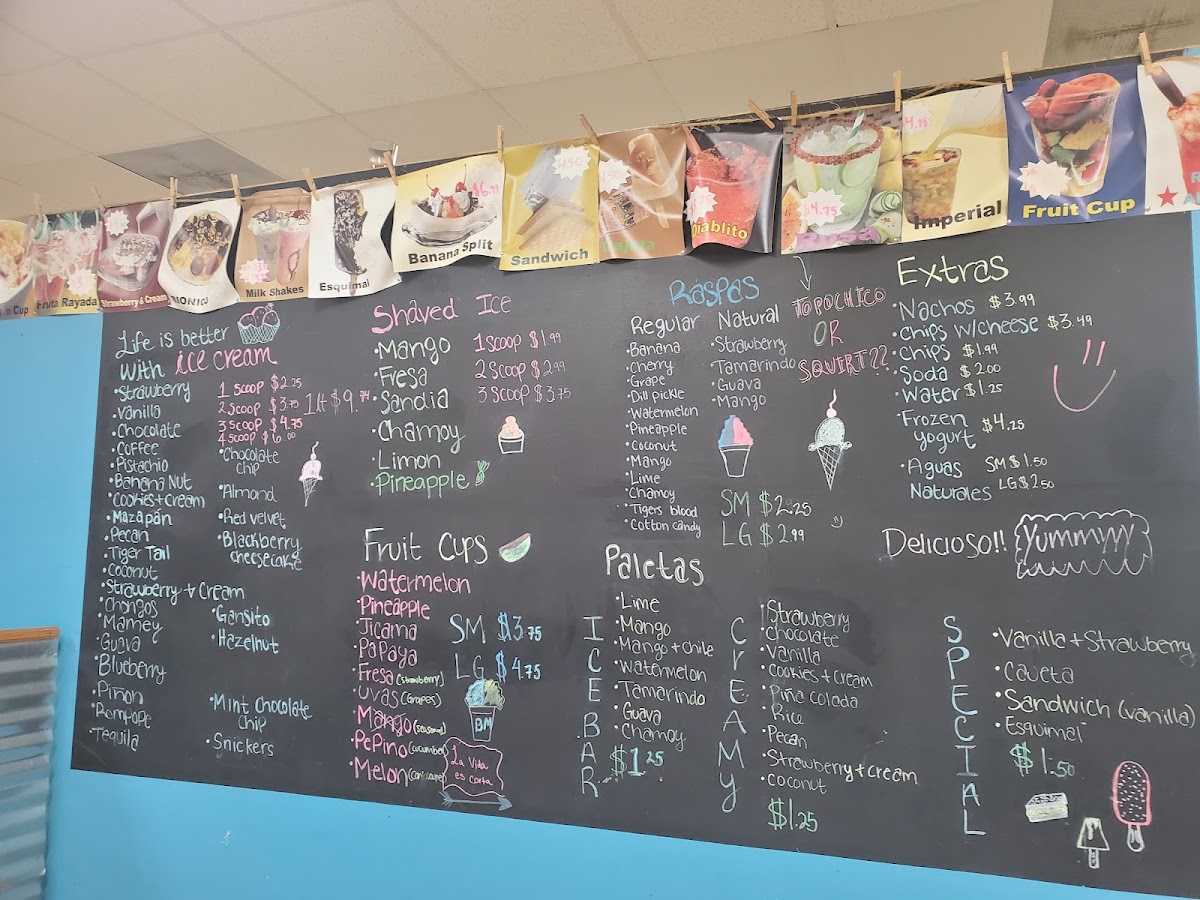 Fruta Rayada
Strawberry & Cream
Milk Shakes
Esquimal
Banana Split
Sandwich
$1.50
Diablito
$4.75
4.75
Imperial
Fruit Cup
Life is better
with ice cream
• Strawberry
• Vanilla
• Chocolate
• Coffee
• Pistachio
• Banana Nut
• Cookies+Cream
• Mazapán
• Pecan
• Tiger Tail
• Coconut
• Strawberry + Cream
• Chongos
• Mamey
• Guava
• Blueberry
• Piñon
• Rompope
• Tequila
1 scoop $2.25
2 scoop $3.75
3 scoop $4.75
4 scoop $6.00
1 Lt $9.74
• Chocolate
chip
• Almond
• Red velvet
• Blackberry
cheesecake
• Gansito
• Hazelnut
• Mint Chocolate
Chip
• Snickers
Shaved Ice
• Mango
• Fresa
• Sandia
• Chamoy
• Limon
• Pineapple
1 scoop $1.99
2 scoop $2.99
3 scoop $3.75
Fruit Cups
• Watermelon
• Pineapple
• Jicama
• Papaya
• Fresa (strawberry)
• Uvas (Grapes)
• Mango (seasonal)
• Pepino (cucumber)
• Melon
SM $3.75
LG $4.75
BM
La Vida
es corta
Raspas
Regular
• Banana
• Cherry
• Grape
• Dill pickle
• Watermelon
• Pineapple
• Coconut
• Mango
• Lime
• Chamoy
• Tigers blood
• Cotton candy
Natural
• Strawberry
• Tamarindo
• Guava
• Mango
SM $2.25
LG $2.99
TOPOCHICO
OR
SQUIRT??
Extras
• Nachos $3.99
• Chips w/cheese $3.49
• Chips $1.99
• Soda $2.00
• Water $1.25
• Frozen
yogurt $4.25
• Aguas SM $1.50
Naturales LG $2.50
Delicioso!!
Yummyyy
Paletas
ICE BAR
• Lime
• Mango
• Mango + chile
• Watermelon
• Tamarindo
• Guava
• Chamoy
$1.25
CreAMy
• Strawberry
• Chocolate
• Vanilla
• Cookies + cream
• Piña colada
• Rice
• Pecan
• Strawberry + cream
• Coconut
$1.25
SPECIAL
• Vanilla + Strawberry
• Cajeta
• Sandwich (vanilla)
• Esquimal
$1.50